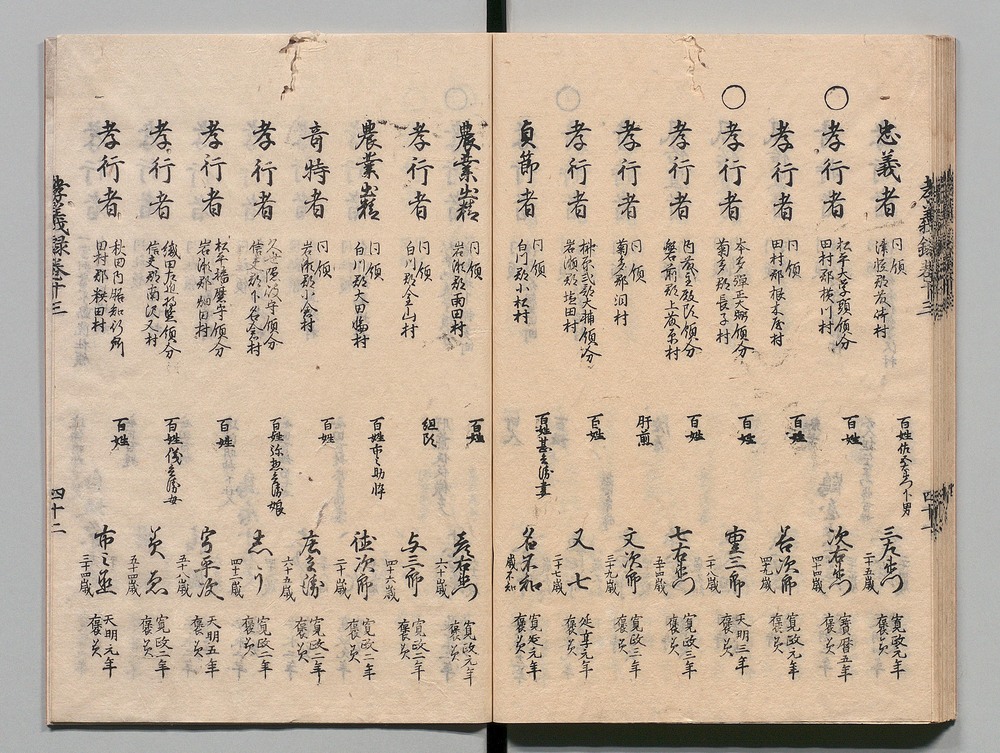 忠義者 同領 津軽郡 村 百姓佐 下男 三左衛門 二十五歳 寛政元年 褒美
○ 孝行者 松平大学頭領分 田村郡横川村 百姓 次右衛門 四十四歳 宝暦五年 褒美
孝行者 同領 田村郡根木屋村 百姓 若次郎 四十九歳 寛政元年 褒美
○ 孝行者 本多弾正大弼領分 菊多郡長子村 百姓 重三郎 二十八歳 天明三年 褒美
孝行者 内藤 領分 磐前郡 村 百姓 七右衛門 五十四歳 寛政三年 褒美
孝行者 同領 菊多郡泂村 肝煎 文次郎 三十九歳 寛政三年 褒美
孝行者 榊原式部大輔領分 岩瀬郡 田村 百姓 又七 二十七歳 延享元年 褒美
貞節者 同領 白川郡小松村 百姓甚兵衛妻 名不知 歳不知 寛延元年 褒美
農業出精 同領 岩瀬郡雨田村 百姓 右衛門 六十歳 寛政元年 褒美
孝行者 同領 白川郡金山村 組頭 与三郎 四十六歳 寛政二年 褒美
農業出精 同領 白川郡大田 村 百姓市之助悴 徳次郎 二十歳 寛政二年 褒美
奇特者 同領 岩瀬郡小倉村 百姓 庄兵衛 六十五歳 寛政二年 褒美
孝行者 久世隠岐守領分 信夫郡下名倉村 百姓弥惣兵衛娘 四十二歳 寛政二年 褒美
孝行者 松平播磨守領分 岩瀬郡畑田村 百姓 宇平次 五十八歳 天明五年 褒美
孝行者 織田左近将監領分 信夫郡南沢又村 百姓儀兵衛女 五十四歳 寛政二年 褒美
孝行者 秋田内膳知行所 田村郡 田村 百姓 市之丞 三十四歳 天明元年 褒美
孝義録巻十三 四十二